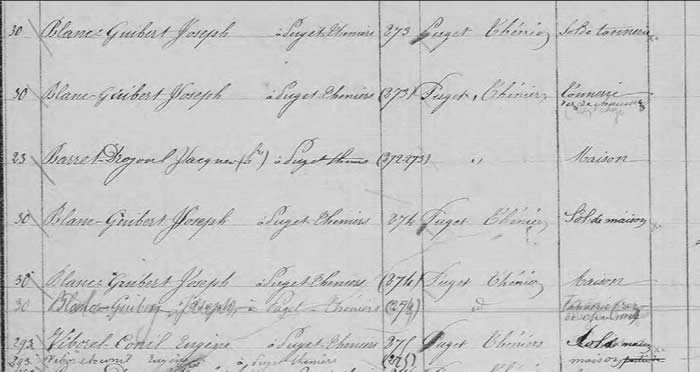 30 Blanc-Guibert Joseph à Puget-Théniers 273 Puget Théniers Sol de tannerie
30 Blanc-Guibert Joseph à Puget-Théniers (273) Puget, Théniers Tannerie
rez de chaussée
23 Barret-Drogoul Jacques (fils) à Puget (272-273) " Maison
30 Blanc-Guibert Joseph à Puget-Théniers 274 Puget Théniers Sol de maison
30 Blanc Guibert Joseph à Puget-Théniers (274) Puget Théniers Maison
30 Blanc-Guibert Joseph à Puget-Théniers (274) id tannerie rez
de chaussée
293 Viboret Conil Eugène à Puget-Théniers 275 Puget Théniers Sol de maison
293 Eugène à Puget Théniers (275) maison